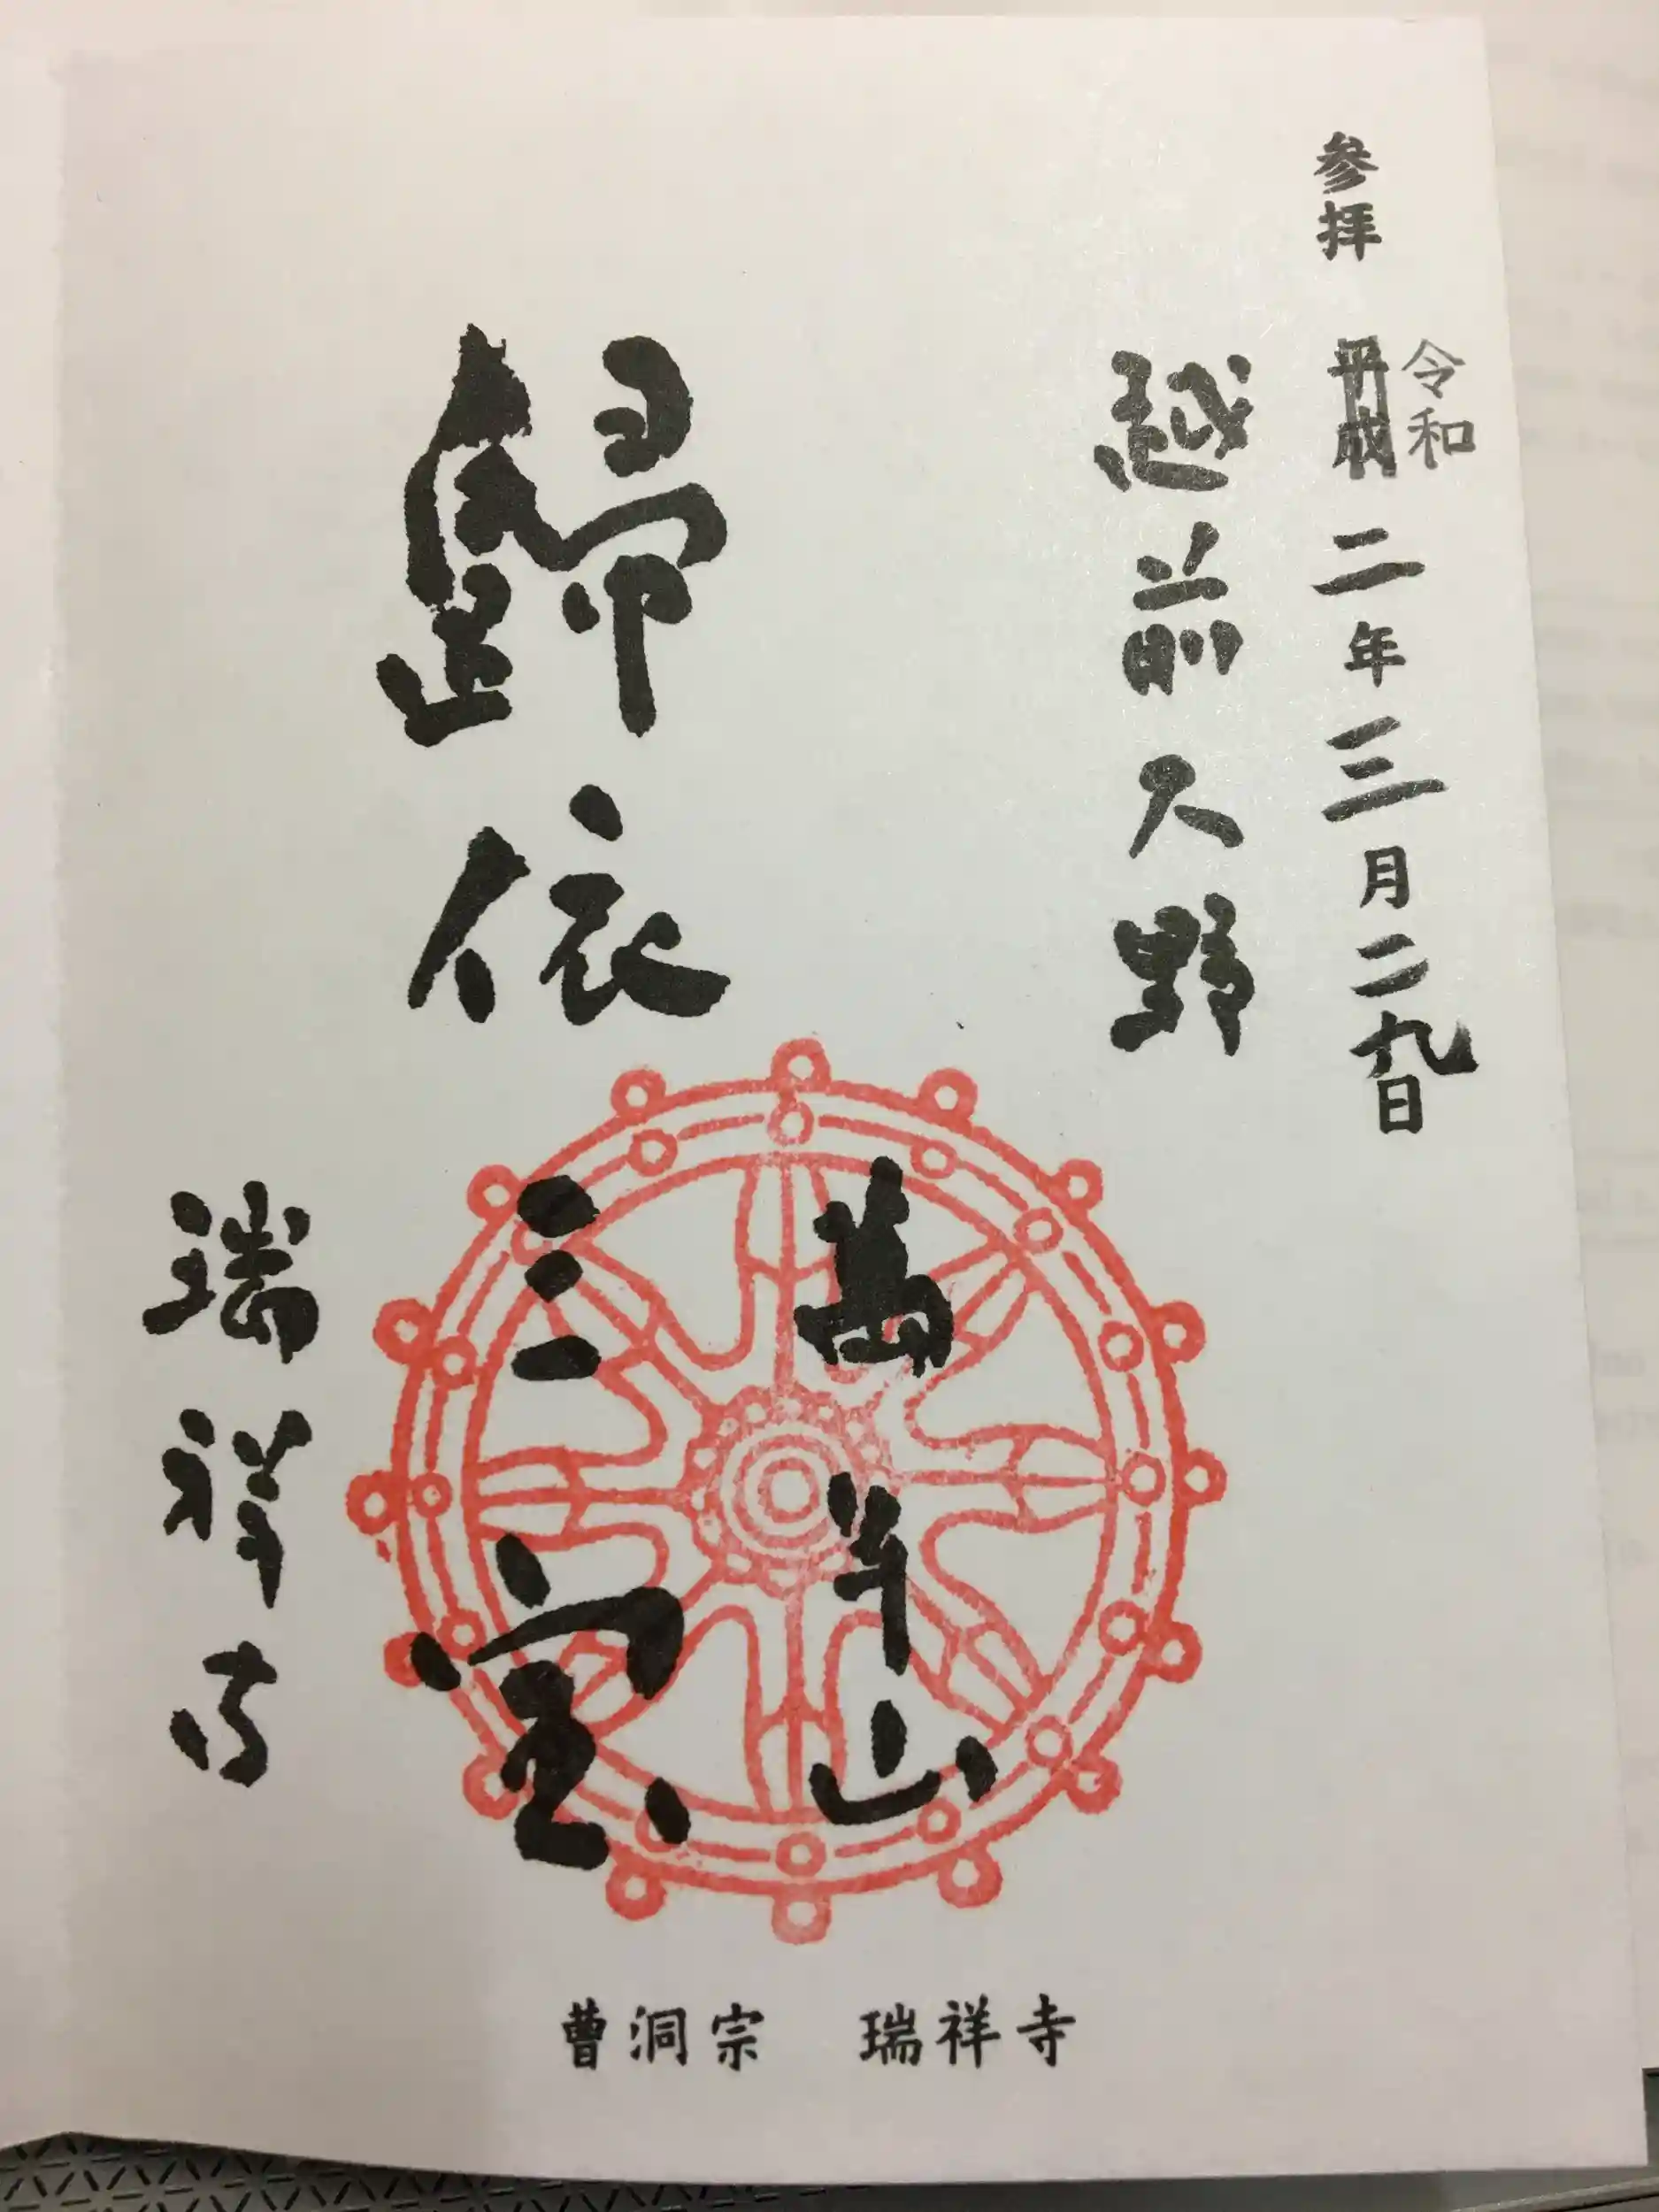 参拝 平成 二年三月二九日
令和
越前大野
萬年山
歸依三宝
瑞祥寺
曹洞宗 瑞祥寺